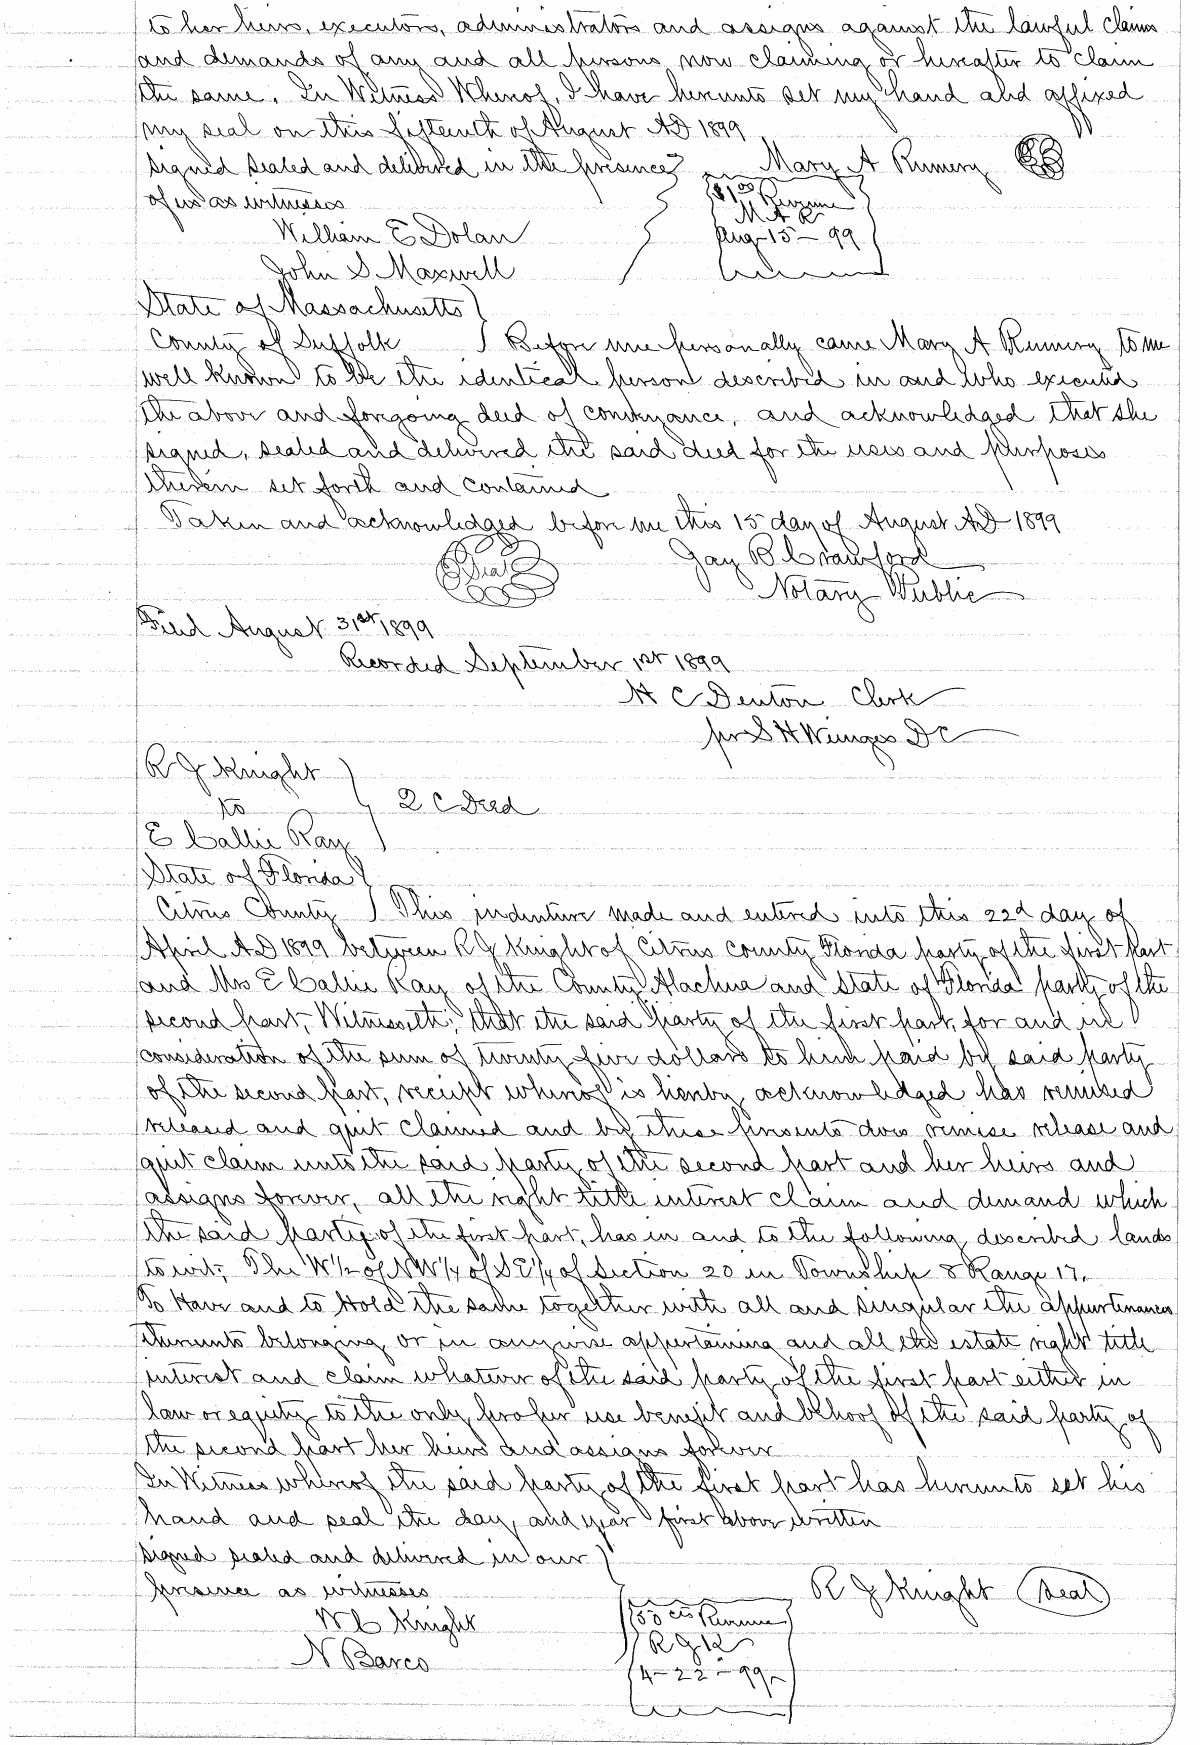 to her heirs, executors, administrators and assigns against the lawful claims
and demands of any and all persons now claiming or hereafter to claim
the same. In Witness Whereof, I have hereunto set my hand and affixed
my seal on this fifteenth of August AD 1899
signed sealed and delivered in the presence Mary A Rumery
of us as witnesses $1.00 Revenue
M A R
William E Dolan Aug-15-99
John S. Maxwell
State of Massachusetts
County of Suffolk Before me personally came Mary A Rumery to me
well known to be the identical person described in and who executed
the above and forgoing deed of conveyance, and acknowledged that she
signed, sealed and delivered the said deed for the uses and purposes
therein set forth and contained
Taken and acknowledged before me this 15 day of August AD 1899
Seal Gay B Crawford
Notary Public
Filed August 31st 1899
Recorded September 1st 1899
H C Denton Clerk
pr S H Wienges DC
R J Knight
to Q C Deed
E Callie Ray
State of Florida
Citrus County This indenture made and entered into this 22d day of
April AD 1899 between R J Knight of Citrus County Florida party of the first part
and Mrs E Callie Ray of the County Alachua and State of Florida party of the
second part, Witnesseth; that the said party of the first part, for and in
consideration of the sum of twenty five dollars to him paid by said party
of the second part, receipt whereof is hereby acknowledged has remised
released and quit claimed and by these presents does remise release and
quit claim unto the said party of the second part and her heirs and
assigns forever, all the right title interest claim and demand which
the said party of the first part, has in and to the following described lands
to wit; The W½ of NW¼ of SE¼ of Section 20 in Township 8 Range 17.
To Have and to Hold the same together with all and singular the appurtenances
thereunto belonging or in anywise appertaining and all the estate right title
interest and claim whatever of the said party of the first part either in
law or equity to the only proper use benefit and behoof of the said party of
the second part her heirs and assigns forever
In Witness whereof the said party of the first part has hereunto set his
hand and seal the day and year first above written
signed sealed and delivered in our
presence as witnesses R J Knight Seal
W C Knight 50 cts Revenue
R J K
N Barco 4-22-99